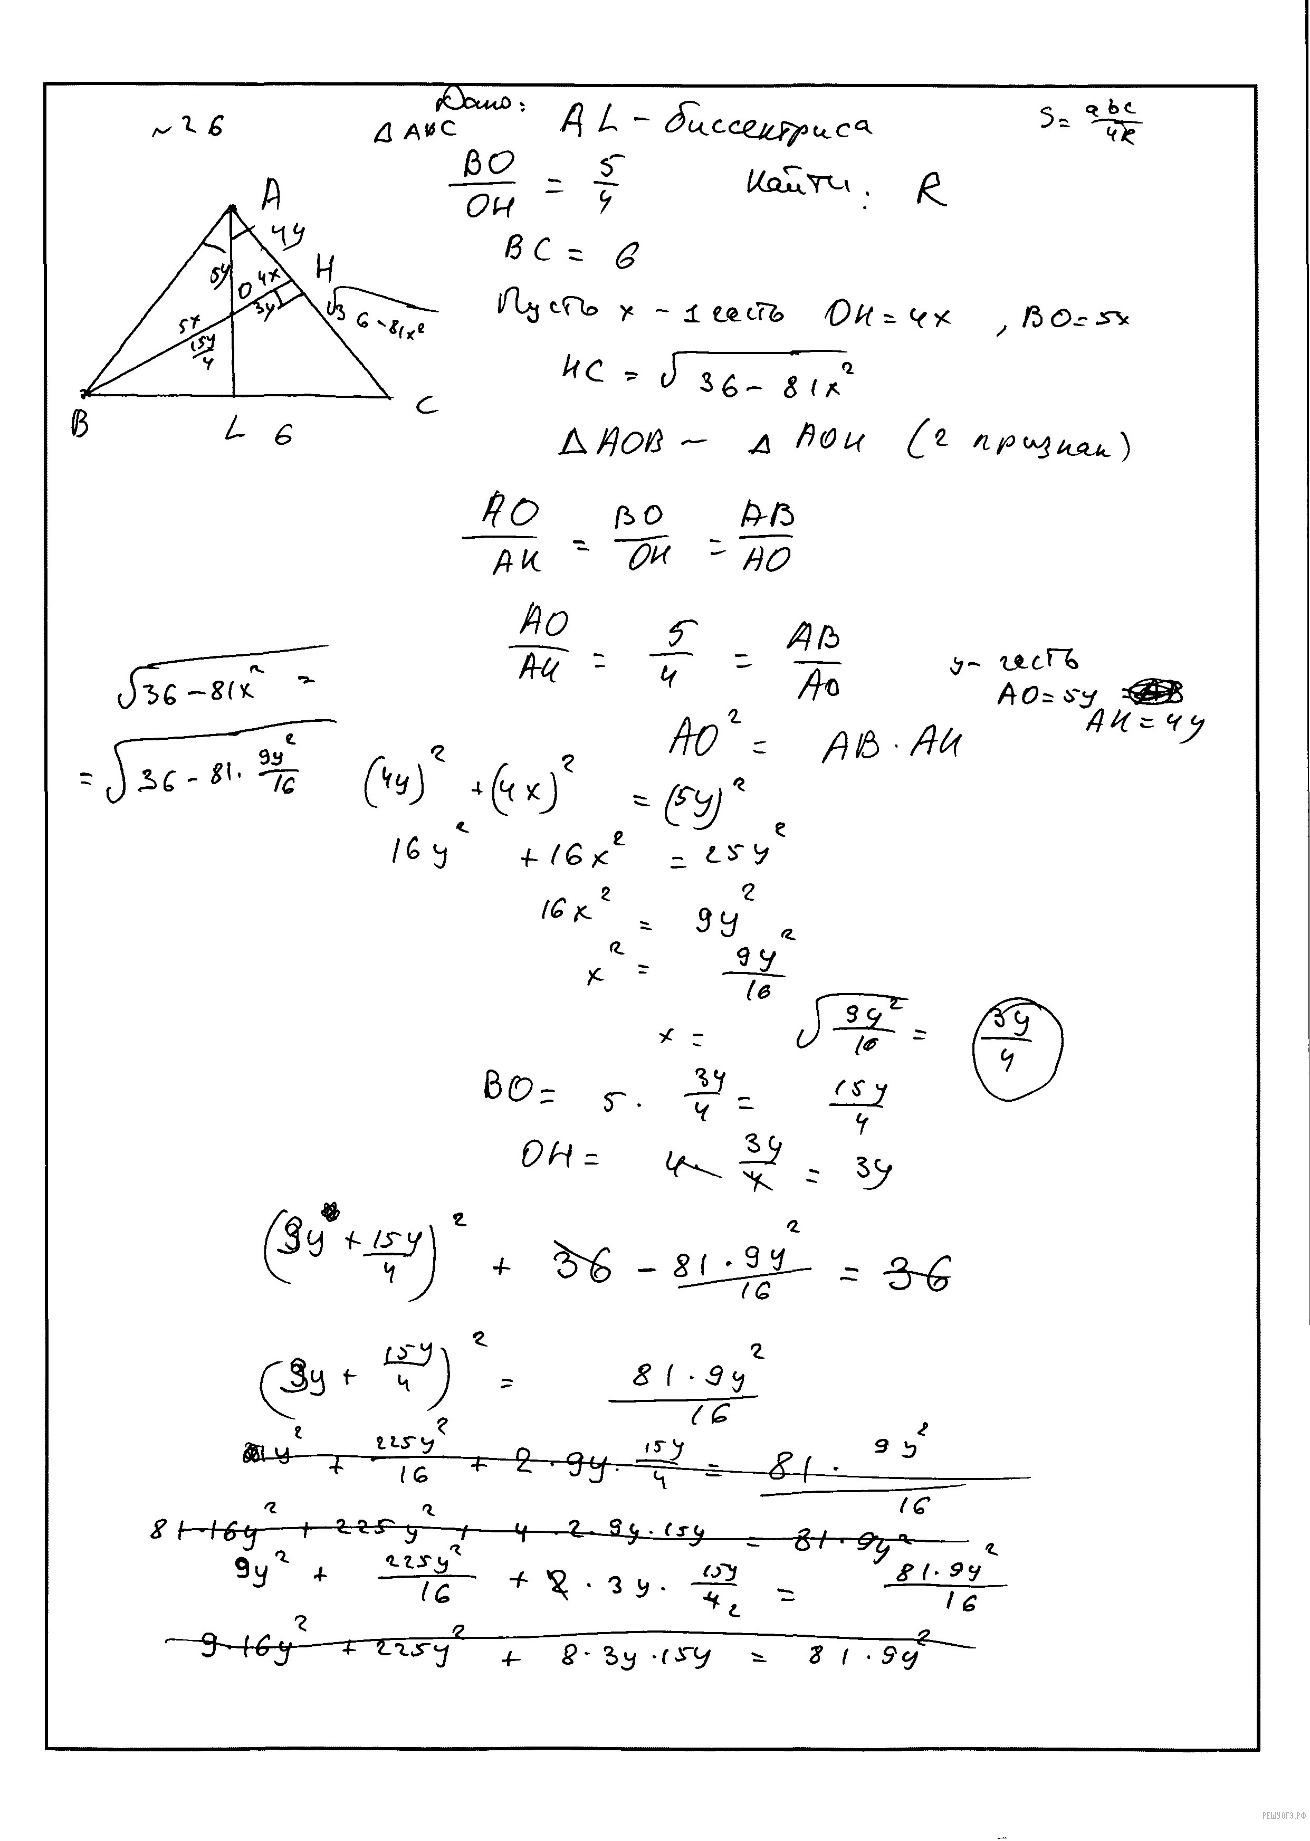 ~26 Дано: AL - биссектриса S = abc/4R
Δ ABC
BO/OH = 5/4 Найти: R
BC = 6
A
4y
5y O 4x H
3y √36-81x²
5x
15y/4
B L 6 C
Пусть x - 1 часть OH = 4x , BO = 5x
HC = √36 - 81x²
Δ AOB ~ Δ AOH (2 признак)
AO/AH = BO/OH = AB/AO
AO/AH = 5/4 = AB/AO y - часть
AO = 5y
AH = 4y
√36 - 81x² =
= √36 - 81 · 9y²/16
AO² = AB · AH
(4y)² + (4x)² = (5y)²
16y² + 16x² = 25y²
16x² = 9y²
x² = 9y²/16
x = √9y²/16 = 3y/4
BO = 5 · 3y/4 = 15y/4
OH = 4 · 3y/4 = 3y
(3y + 15y/4)² + 36 - 81·9y²/16 = 36
(3y + 15y/4)² = 81·9y²/16
y² + 225y²/16 + 2·9y·15y/4 = 81·9y²/16
81·16y² + 225y² + 4·2·9y·15y = 81·9y²
9y² + 225y²/16 + 2·3y·15y/4 2 = 81·9y²/16
9·16y² + 225y² + 8·3y·15y = 81·9y²
РЕШУОГЭ.РФ